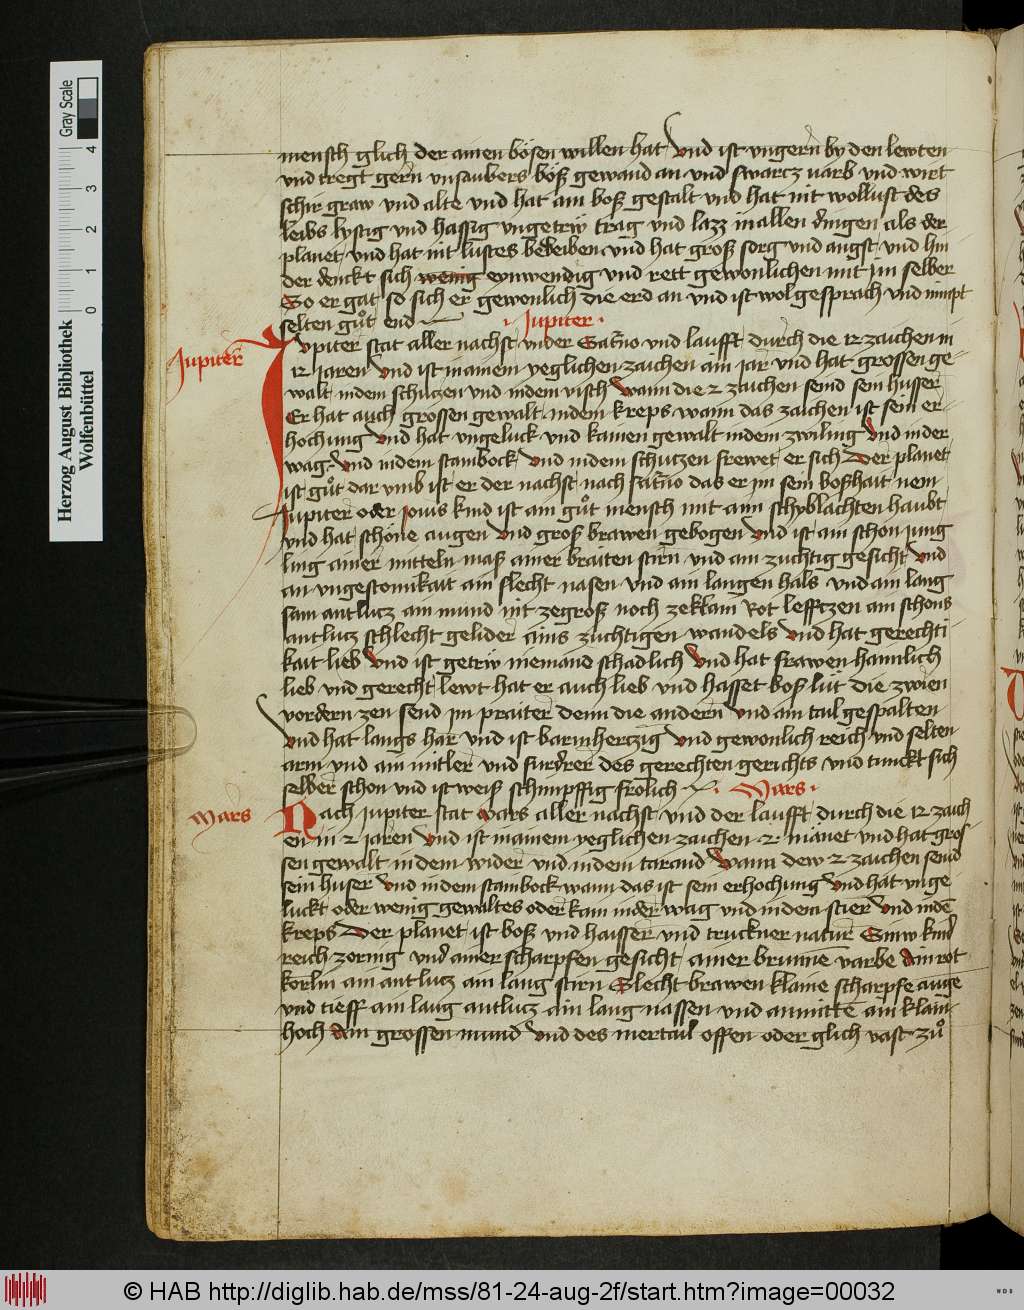 mensch glich der ainen bösen willen hat vnd ist vngern by den lewten
vnd tregt gern vnsaubers böß gewand an vnd swarcz varb vnd wirt
schir graw vnd alte vnd hat ain boß gestalt vnd hat nit wollust des
leibs lystig vnd hassig vngetriw trag vnd lazz in allen dingen als der
planet vnd hat nit lustes beweiben vnd hat groß sorg vnd angst vnd hin
der denckt sich wenig eynwendig vnd rett gewonlichen mit jm selber
So er gat so sich er gewonlich die erd an vnd ist wol gesprach vnd nimpt
selten gůt end
Jupiter
Jupiter
Jvpiter stat aller nachst vnder Saturno vnd laufft durch die 12 zaichen in
12 jaren vnd ist in ainem yeglichen zaichen ain jar vnd hat grossen ge-
walt in dem schuczen vnd in dem visch wann die 2 zaichen send sein huser
Er hat auch grossen gewalt in dem kreps wann das zaichen ist sein er-
hochung vnd hat vngeluck vnd kainen gewalt in dem zwiling vnd in der
wag vnd in dem stainbock vnd in dem schutzen frewet er sich Der planet
ist gůt dar vmb ist er der nachst nach saturno das er im sein boßhait nem
Jupiter oder jouis kind ist ain gůt mensch mit aim schyblachten haubt
vnd hat schöne augen vnd groß brawen gebogen vnd ist ain schon jung
ling ainer mitteln maß ainer braiten stirn vnd ain zuchtig gesicht vnd
an vngestomikait ain slecht nasen vnd ain langen hals vnd ain lang
sam antlucz ain mund nit zegroß noch zeklain Rot lefftzen ain schons
antlucz schlecht gelider ains zuchtigen wandels vnd hat gerechti
kait lieb vnd ist getriw niemand schadlich vnd hat frawen hainlich
lieb vnd gerecht lewt hat er auch lieb vnd hasset boß lüt die zwien
vordern zen send jm praiter denn die andern vnd ain tail gespalten
vnd hat langs har vnd ist barmherczig vnd gewonlich reich vnd selten
arm vnd ain mitler vnd furdrer des gerechten gerichts vnd tunckt sich
selber schon vnd ist weiß schimpffig frölich
Mars
Mars
Nach jupiter stat mars aller nachst vnd der laufft durch die 12 zaich
en in 2 jaren vnd ist in ainem yeglichen zaichen 2 manet vnd hat gros
sen gewalt in dem wider vnd in dem taraud wann dew 2 zaichen send
sein huser vnd in dem stainbock wann das ist sein erhochung vnd hat vnge
luckt oder wenig gewaltes oder kain in der wag vnd in dem stier vnd in dē
kreps Der planet ist boß vnd haisser vnd truckner natur Sinw kind
reich zornig vnd ainer scharpfen gesicht ainer brunne varbe ain rot
korlin ain antlucz ain lang stirn Slecht brawen klaine scharpfe auge
vnd tieff ain lang antlucz ain lang nassen vnd anmittē ain klain
hoch ain grossen mund vnd des mertail offen oder glich vast zů
Gray Scale
0 1 2 3 4
Herzog August Bibliothek
Wolfenbüttel
© HAB http://diglib.hab.de/mss/81-24-aug-2f/start.htm?image=00032